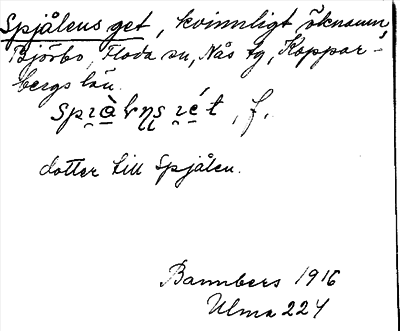 Spjålens get, kvinnligt öknamn,
Bjórbo, Floda sn, Nås tg, Koppar-
bergs län.
f.
dotter till Spjålen.
Bannbers 1916
Ulma 224